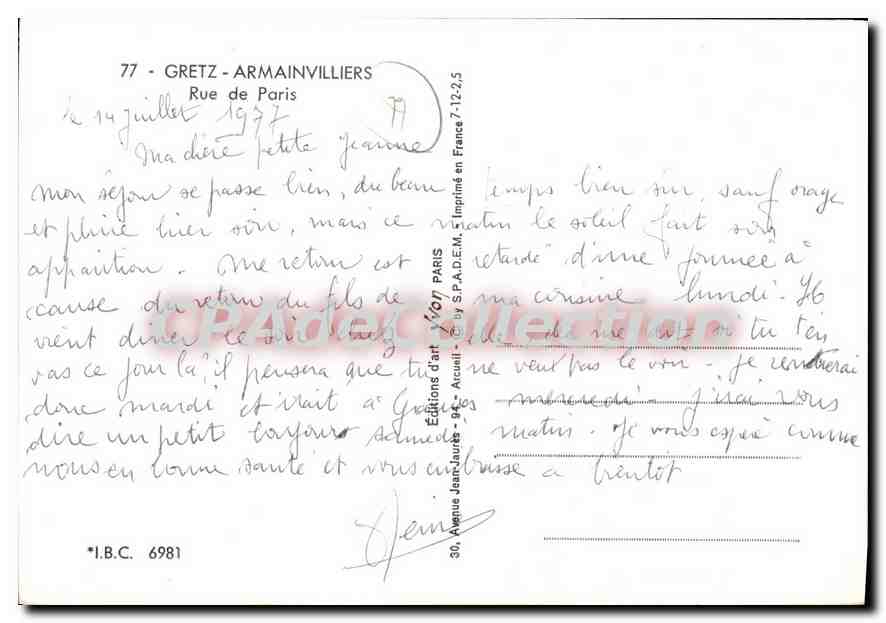 77 - GRETZ-ARMAINVILLIERS
Rue de Paris
le 14 juillet 1977
77
Ma chère petite Jeanne
Mon séjour se passe bien, du beau temps bien sûr, sauf orage
et pluie hier soir, mais ce matin le soleil fait son
apparition. Me retour est retardé d'une journée à
cause du retour du fils de ma cousine lundi. Il
vient diner le soir chez elle elle me dit si tu t'en
vas ce jour là, il pensera que tu ne veut pas le voir. Je rentrerai
donc mardi et irait à mercredi. J'irai vous
dire un petit bonjour samedi matin. Je vous espère comme
nous en bonne santé et vous embrasse a bientôt
*I.B.C. 6981
Éditions d'art Yvon PARIS
30, Avenue Jean-Jaurès - 94 - Arcueil - © by S.P.A.D.E.M. - Imprimé en France 7-12-2,5
CPAdeCollection